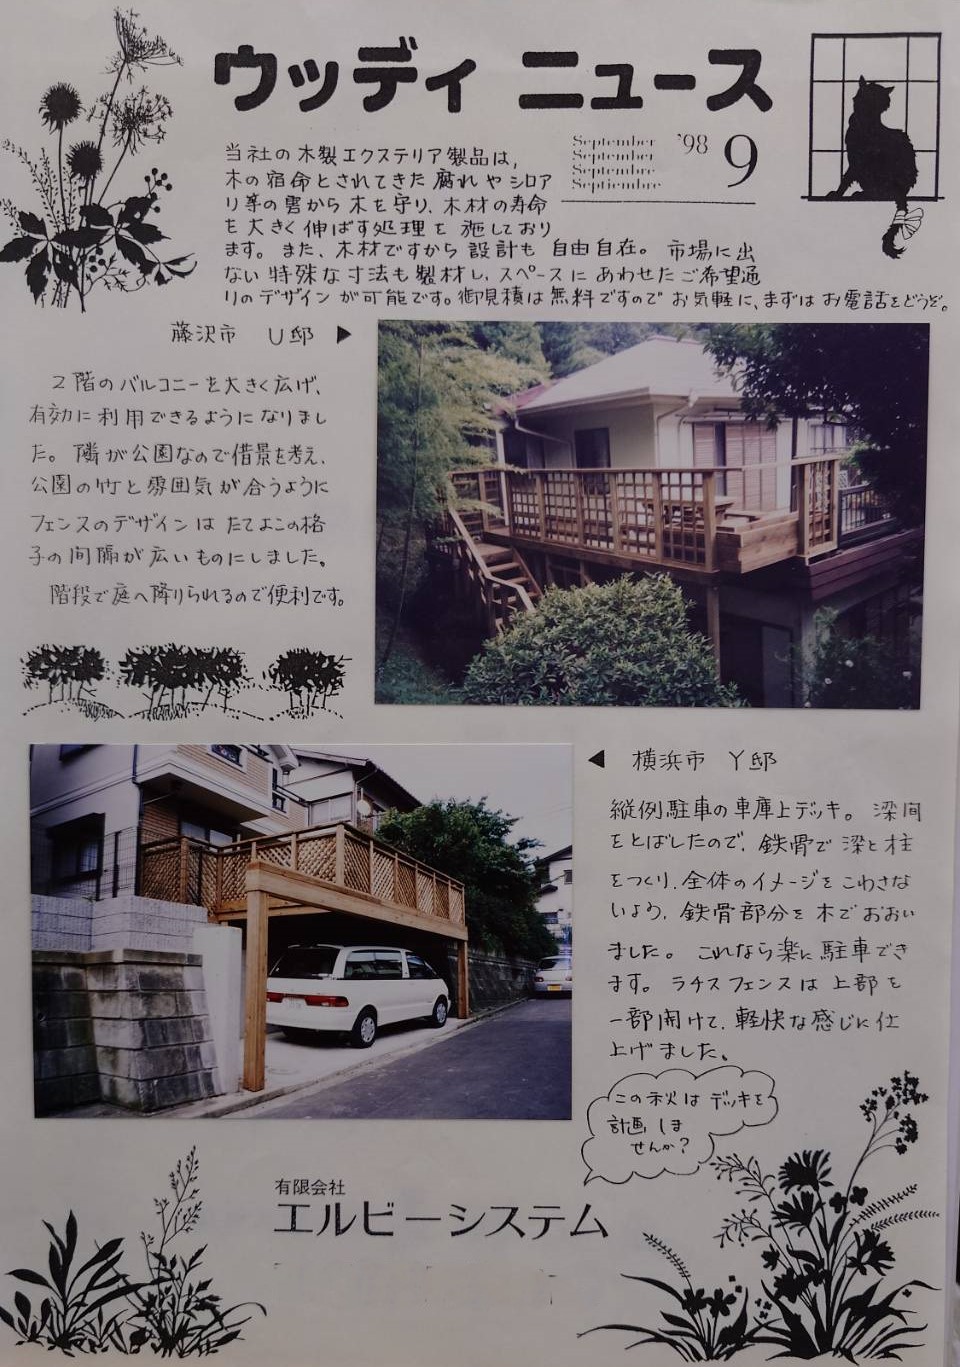 ウッディ ニュース
September
September
Septembre
Septiembre
'98 9
当社の木製エクステリア製品は、
木の宿命とされてきた腐れやシロア
リ等の害から木を守り、木材の寿命
を大きく伸ばす処理を施しており
ます。また、木材ですから設計も自由自在。市場に出
ない特殊な寸法も製材し、スペースにあわせたご希望通
りのデザインが可能です。御見積は無料ですのでお気軽に、まずはお電話をどうぞ。
藤沢市 U邸 ▶
2階のバルコニーを大きく広げ、
有効に利用できるようになりまし
た。隣が公園なので借景を考え、
公園の竹と雰囲気が合うように
フェンスのデザインはたてよこの格
子の間隔が広いものにしました。
階段で庭へ降りられるので便利です。
◀ 横浜市 Y邸
縦例駐車の車庫上デッキ。梁間
をとばしたので、鉄骨で梁と柱
をつくり、全体のイメージをこわさな
いよう、鉄骨部分を木でおおい
ました。これなら楽に駐車でき
ます。ラチスフェンスは上部を
一部開けて、軽快な感じに仕
上げました。
この秋はデッキを
計画しま
せんか?
有限会社
エルビーシステム